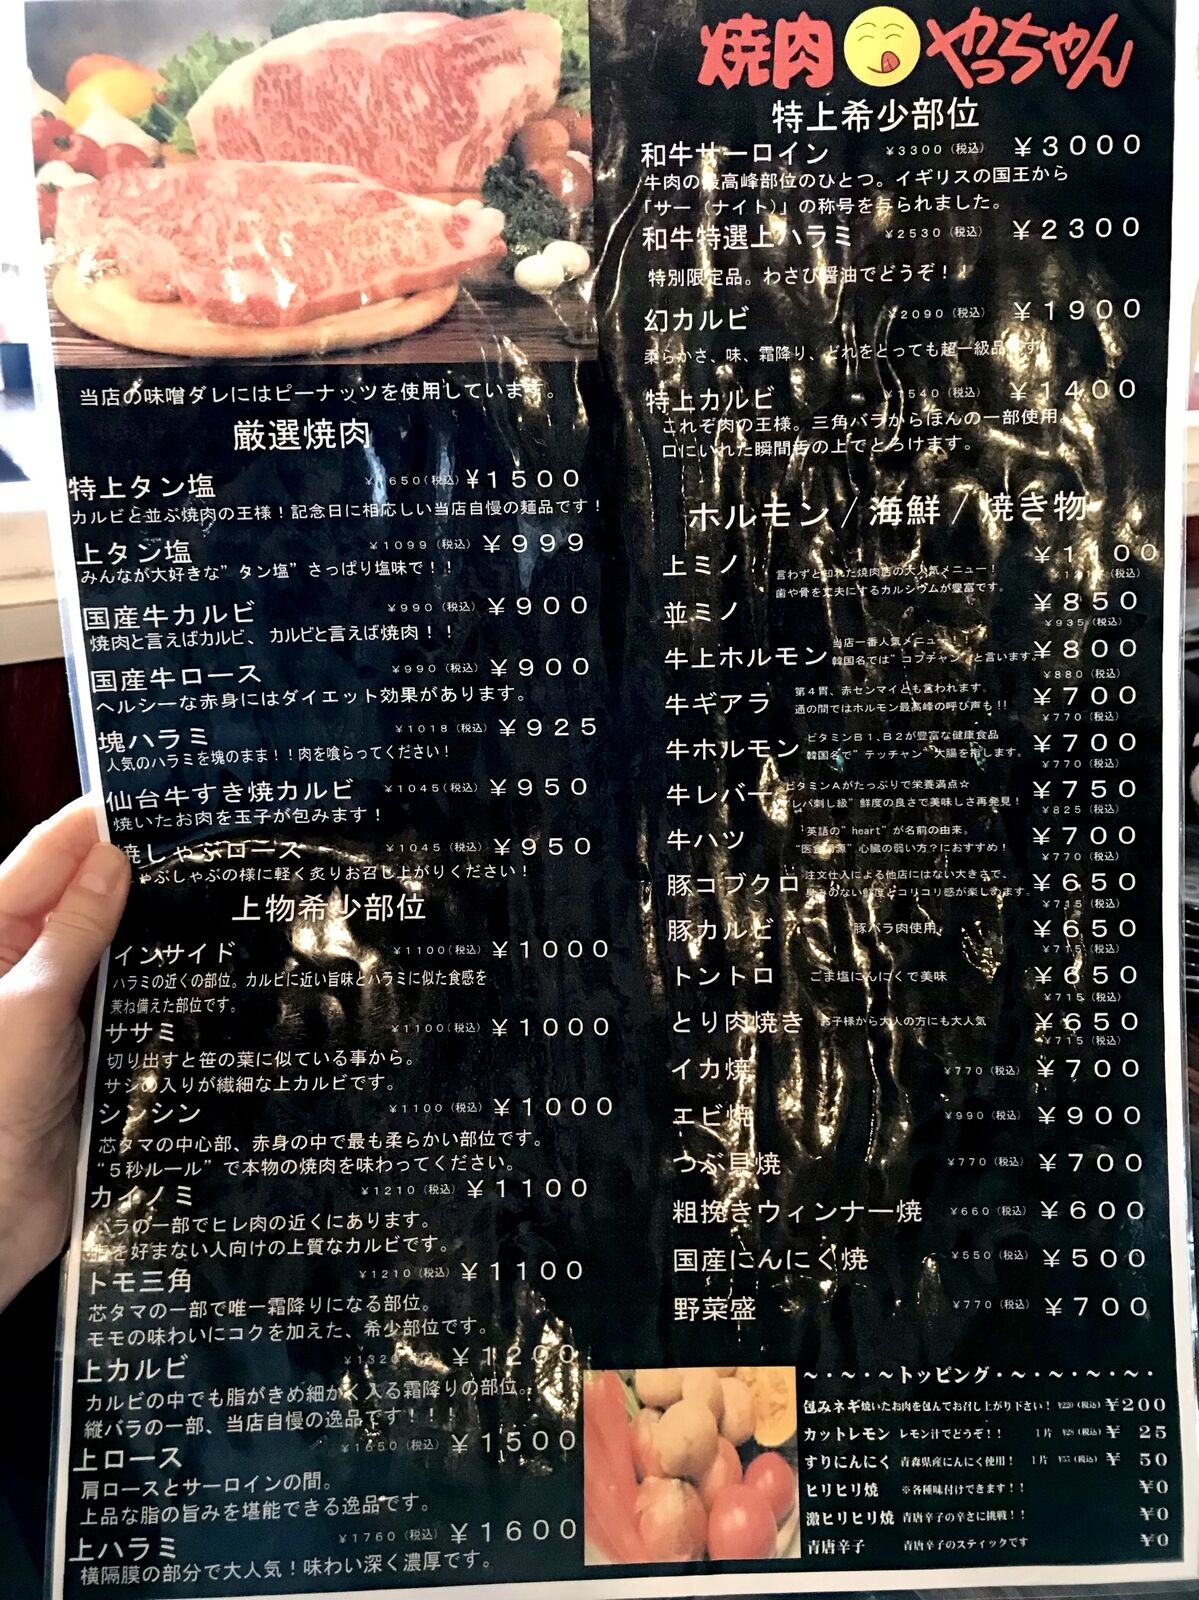 焼肉 やっちゃん
特上希少部位
和牛サーロイン ¥3300(税込) ¥3000
牛肉の最高峰部位のひとつ。イギリスの国王から
「サー(ナイト)」の称号を与られました。
和牛特選上ハラミ ¥2530(税込) ¥2300
特別限定品。わさび醤油でどうぞ!!
幻カルビ ¥2090(税込) ¥1900
柔らかさ、味、霜降り、どれをとっても超一級品です。
特上カルビ ¥1540(税込) ¥1400
これぞ肉の王様。三角バラからほんの一部使用。
口にいれた瞬間舌の上でとろけます。
当店の味噌ダレにはピーナッツを使用しています。
厳選焼肉
特上タン塩 ¥1650(税込) ¥1500
カルビと並ぶ焼肉の王様!記念日に相応しい当店自慢の麺品です!
上タン塩 ¥1099(税込) ¥999
みんなが大好きな"タン塩"さっぱり塩味で!!
国産牛カルビ ¥990(税込) ¥900
焼肉と言えばカルビ、カルビと言えば焼肉!!
国産牛ロース ¥990(税込) ¥900
ヘルシーな赤身にはダイエット効果があります。
塊ハラミ ¥1018(税込) ¥925
人気のハラミを塊のまま!!肉を喰らってください!
仙台牛すき焼カルビ ¥1045(税込) ¥950
焼いたお肉を玉子が包みます!
焼しゃぶロース ¥1045(税込) ¥950
ゃぶしゃぶの様に軽く炙りお召し上がりください!
上物希少部位
インサイド ¥1100(税込) ¥1000
ハラミの近くの部位。カルビに近い旨味とハラミに似た食感を
兼ね備えた部位です。
ササミ ¥1100(税込) ¥1000
切り出すと笹の葉に似ている事から。
サシの入りが繊細な上カルビです。
シンシン ¥1100(税込) ¥1000
芯タマの中心部、赤身の中で最も柔らかい部位です。
"5秒ルール"で本物の焼肉を味わってください。
カイノミ ¥1210(税込) ¥1100
バラの一部でヒレ肉の近くにあります。
を好まない人向けの上質なカルビです。
トモ三角 ¥1210(税込) ¥1100
芯タマの一部で唯一霜降りになる部位。
モモの味わいにコクを加えた、希少部位です。
上カルビ ¥1320 ¥1200
カルビの中でも脂がきめ細かく入る霜降りの部位。
縦バラの一部、当店自慢の逸品です!!!
上ロース ¥1650(税込) ¥1500
肩ロースとサーロインの間。
上品な脂の旨みを堪能できる逸品です。
上ハラミ ¥1760(税込) ¥1600
横隔膜の部分で大人気!味わい深く濃厚です。
ホルモン/海鮮/焼き物
上ミノ 言わずと知れた焼肉店の大人気メニュー! ¥1100
歯や骨を丈夫にするカルシウムが豊富です。
並ミノ ¥850
¥935(税込)
牛上ホルモン 当店一番人気メニュー!! ¥800
韓国名では"コプチャン"と言います。 ¥880(税込)
牛ギアラ 第4胃、赤センマイとも言われます。 ¥700
通の間ではホルモン最高峰の呼び声も!! ¥770(税込)
牛ホルモン ビタミンB1、B2が豊富な健康食品 ¥700
韓国名で"テッチャン"大腸を指します。 ¥770(税込)
牛レバー ビタミンAがたっぷりで栄養満点☆ ¥750
"レバ刺し級"鮮度の良さで美味しさ再発見! ¥825(税込)
牛ハツ 英語の"heart"が名前の由来。 ¥700
心臓の弱い方?におすすめ! ¥770(税込)
豚コブクロ 注文仕入による他店にはない大きさで、 ¥650
臭みのない鮮度とコリコリ感が楽しめます。 ¥715(税込)
豚カルビ 豚バラ肉使用。 ¥650
¥715(税込)
トントロ ごま塩にんにくで美味 ¥650
¥715(税込)
とり肉焼き お子様から大人の方にも大人気 ¥650
¥715(税込)
イカ焼 ¥770(税込) ¥700
エビ焼 ¥990(税込) ¥900
つぶ貝焼 ¥770(税込) ¥700
粗挽きウィンナー焼 ¥660(税込) ¥600
国産にんにく焼 ¥550(税込) ¥500
野菜盛 ¥770(税込) ¥700
~・~・~トッピング・~・~・~・~・
包みネギ 焼いたお肉を包んでお召し上がり下さい! ¥220(税込) ¥200
カットレモン レモン汁でどうぞ!! 1片 ¥28(税込) ¥25
すりにんにく 青森県産にんにく使用! 1片 ¥55(税込) ¥50
ヒリヒリ焼 ※各種味付けできます!! ¥0
激ヒリヒリ焼 青唐辛子の辛さに挑戦!! ¥0
青唐辛子 青唐辛子のスティックです ¥0